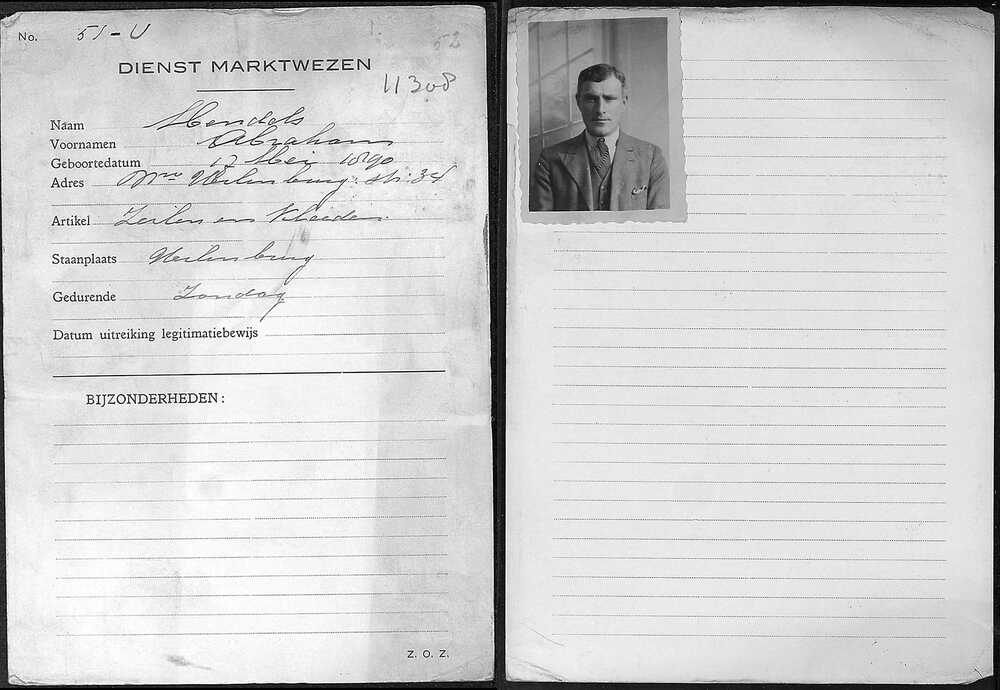 No. 51-U
52
DIENST MARKTWEZEN
11308
Naam Mendels
Voornamen Abraham
Geboortedatum 17 Mei 1890
Adres Nwe Uilenburg. str. 34
Artikel Zeilen en Kleeden.
Staanplaats Uilenburg
Gedurende Zondag
Datum uitreiking legitimatiebewijs
BIJZONDERHEDEN:
Z. O. Z.